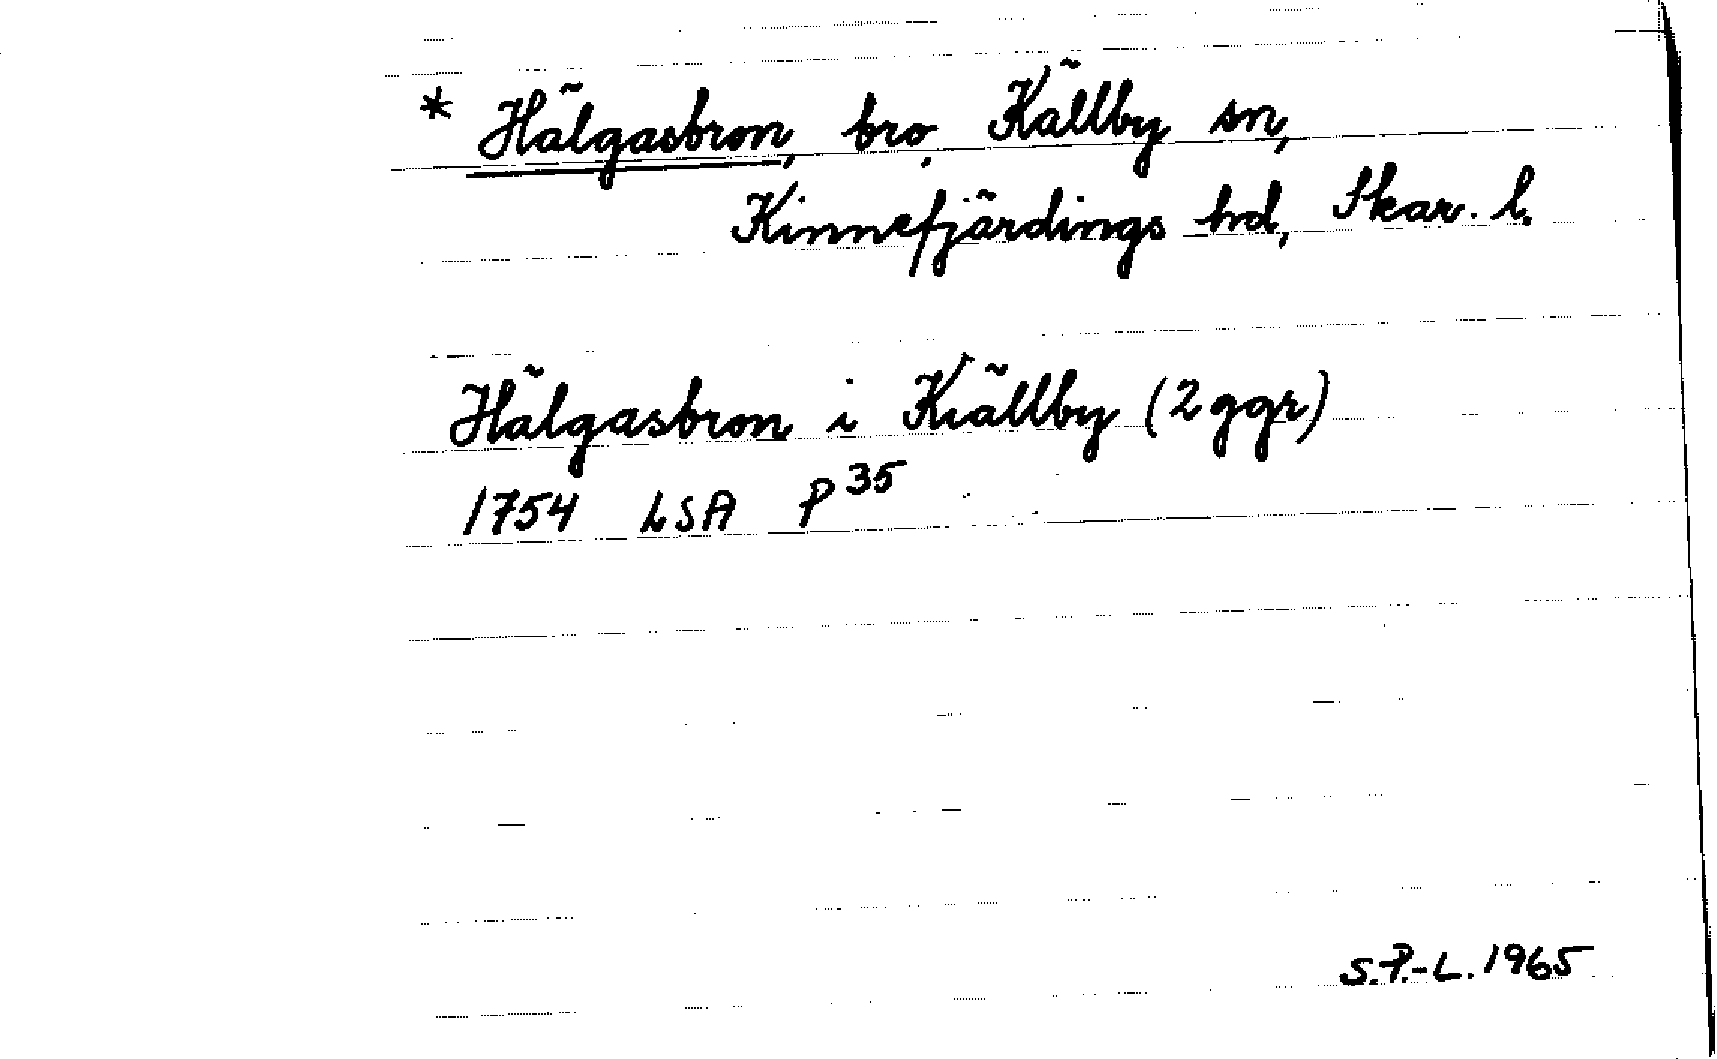 * Hälgasbron, bro, Källby sn,
Kinnefjärdings hd, Skar. l.
Hälgasbron i Kiällby (2 ggr)
1754 LSA P 35
S.P.-L. 1965